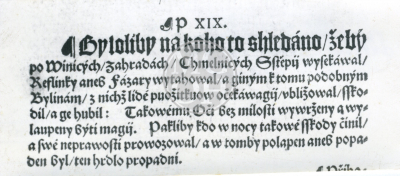 ¶ P XIX.
¶ Byloliby na koho to shledáno / žeby
po Winicých / Zahradách / Chmelnicých Sstěpij wysekáwal /
Reflinky aneb Fázary wytahowal / a giným k tomu podobným
Bylinám / z nichž lidé puožitkuow očekáwagij / vbližowal / sško-
dil / a ge hubil: Takowému Oči bez milosti wywrženy a wy-
laupeny býti magij. Pakliby kdo w nocy takowé sškody činil /
a swé neprawosti prowozowal / a w tomby polapen aneb popa-
den byl / ten hrdlo propadnj.